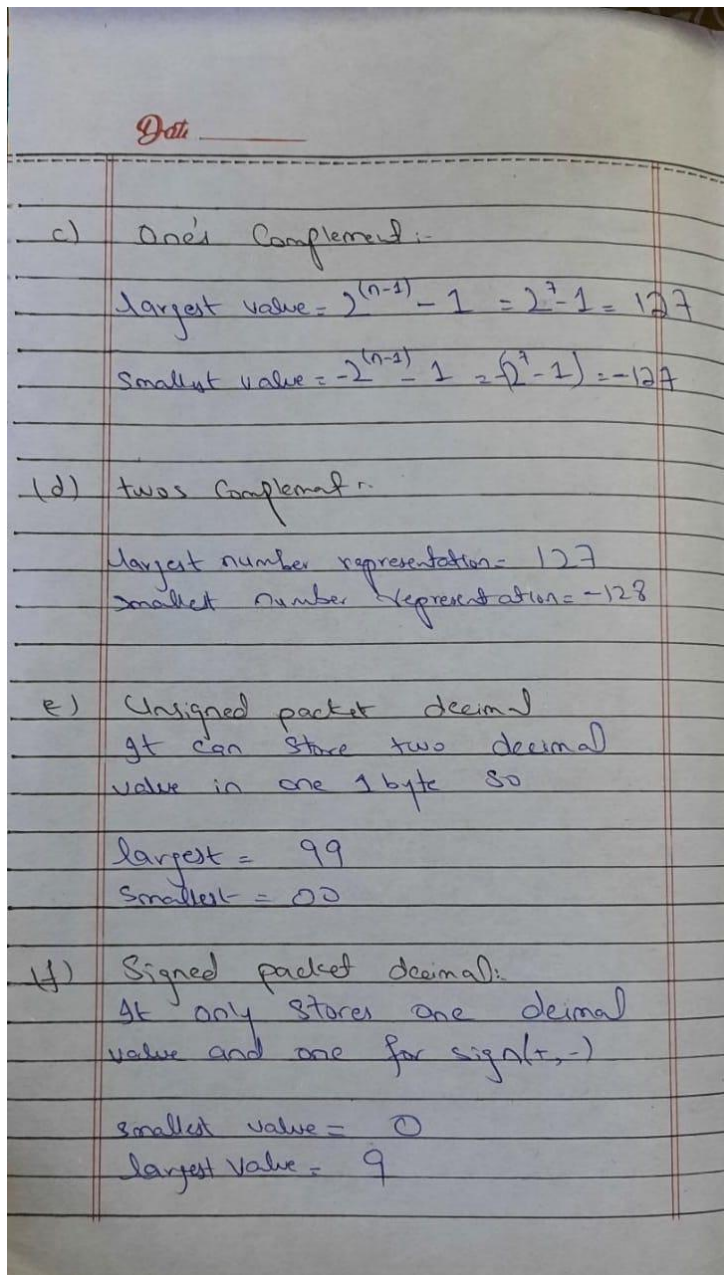 Date
c) One's Complement :-
largest value = 2^(n-1) - 1 = 2^7 - 1 = 127
Smallest value = -2^(n-1) - 1 = -(2^7 - 1) = -127
(d) twos Complemat :-
largest number representation = 127
smallest number representation = -128
e) Unsigned packet decimal
It can store two decimal
value in one 1 byte so
largest = 99
Smallest = 00
(f) Signed packet decimal:
It only stores one deimal
value and one for sign(+,-)
smallest value = 0
largest value = 9